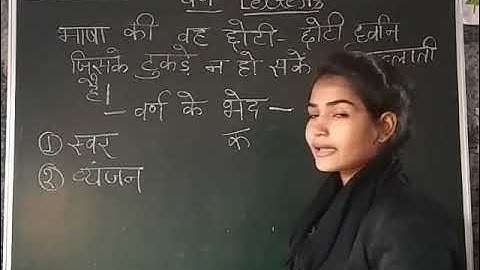 वर्ण Letters
भाषा की वह छोटी - छोटी ध्वनि
जिसके टुकड़े न हो सकें
है।
- वर्ण के भेद -
① स्वर क
② व्यंजन